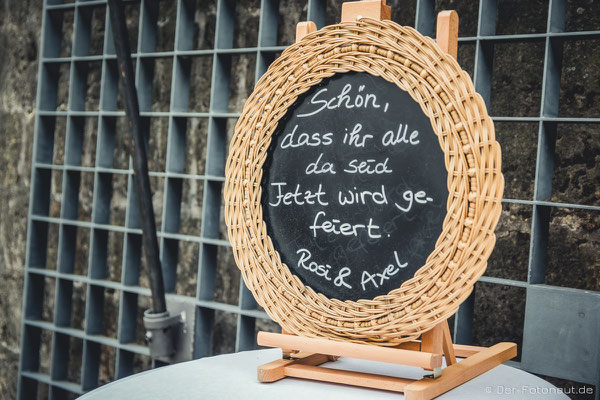 Schön,
dass ihr alle
da seid
Jetzt wird ge-
feiert.
Rosi & Axel
© Der-Fotonaut.de